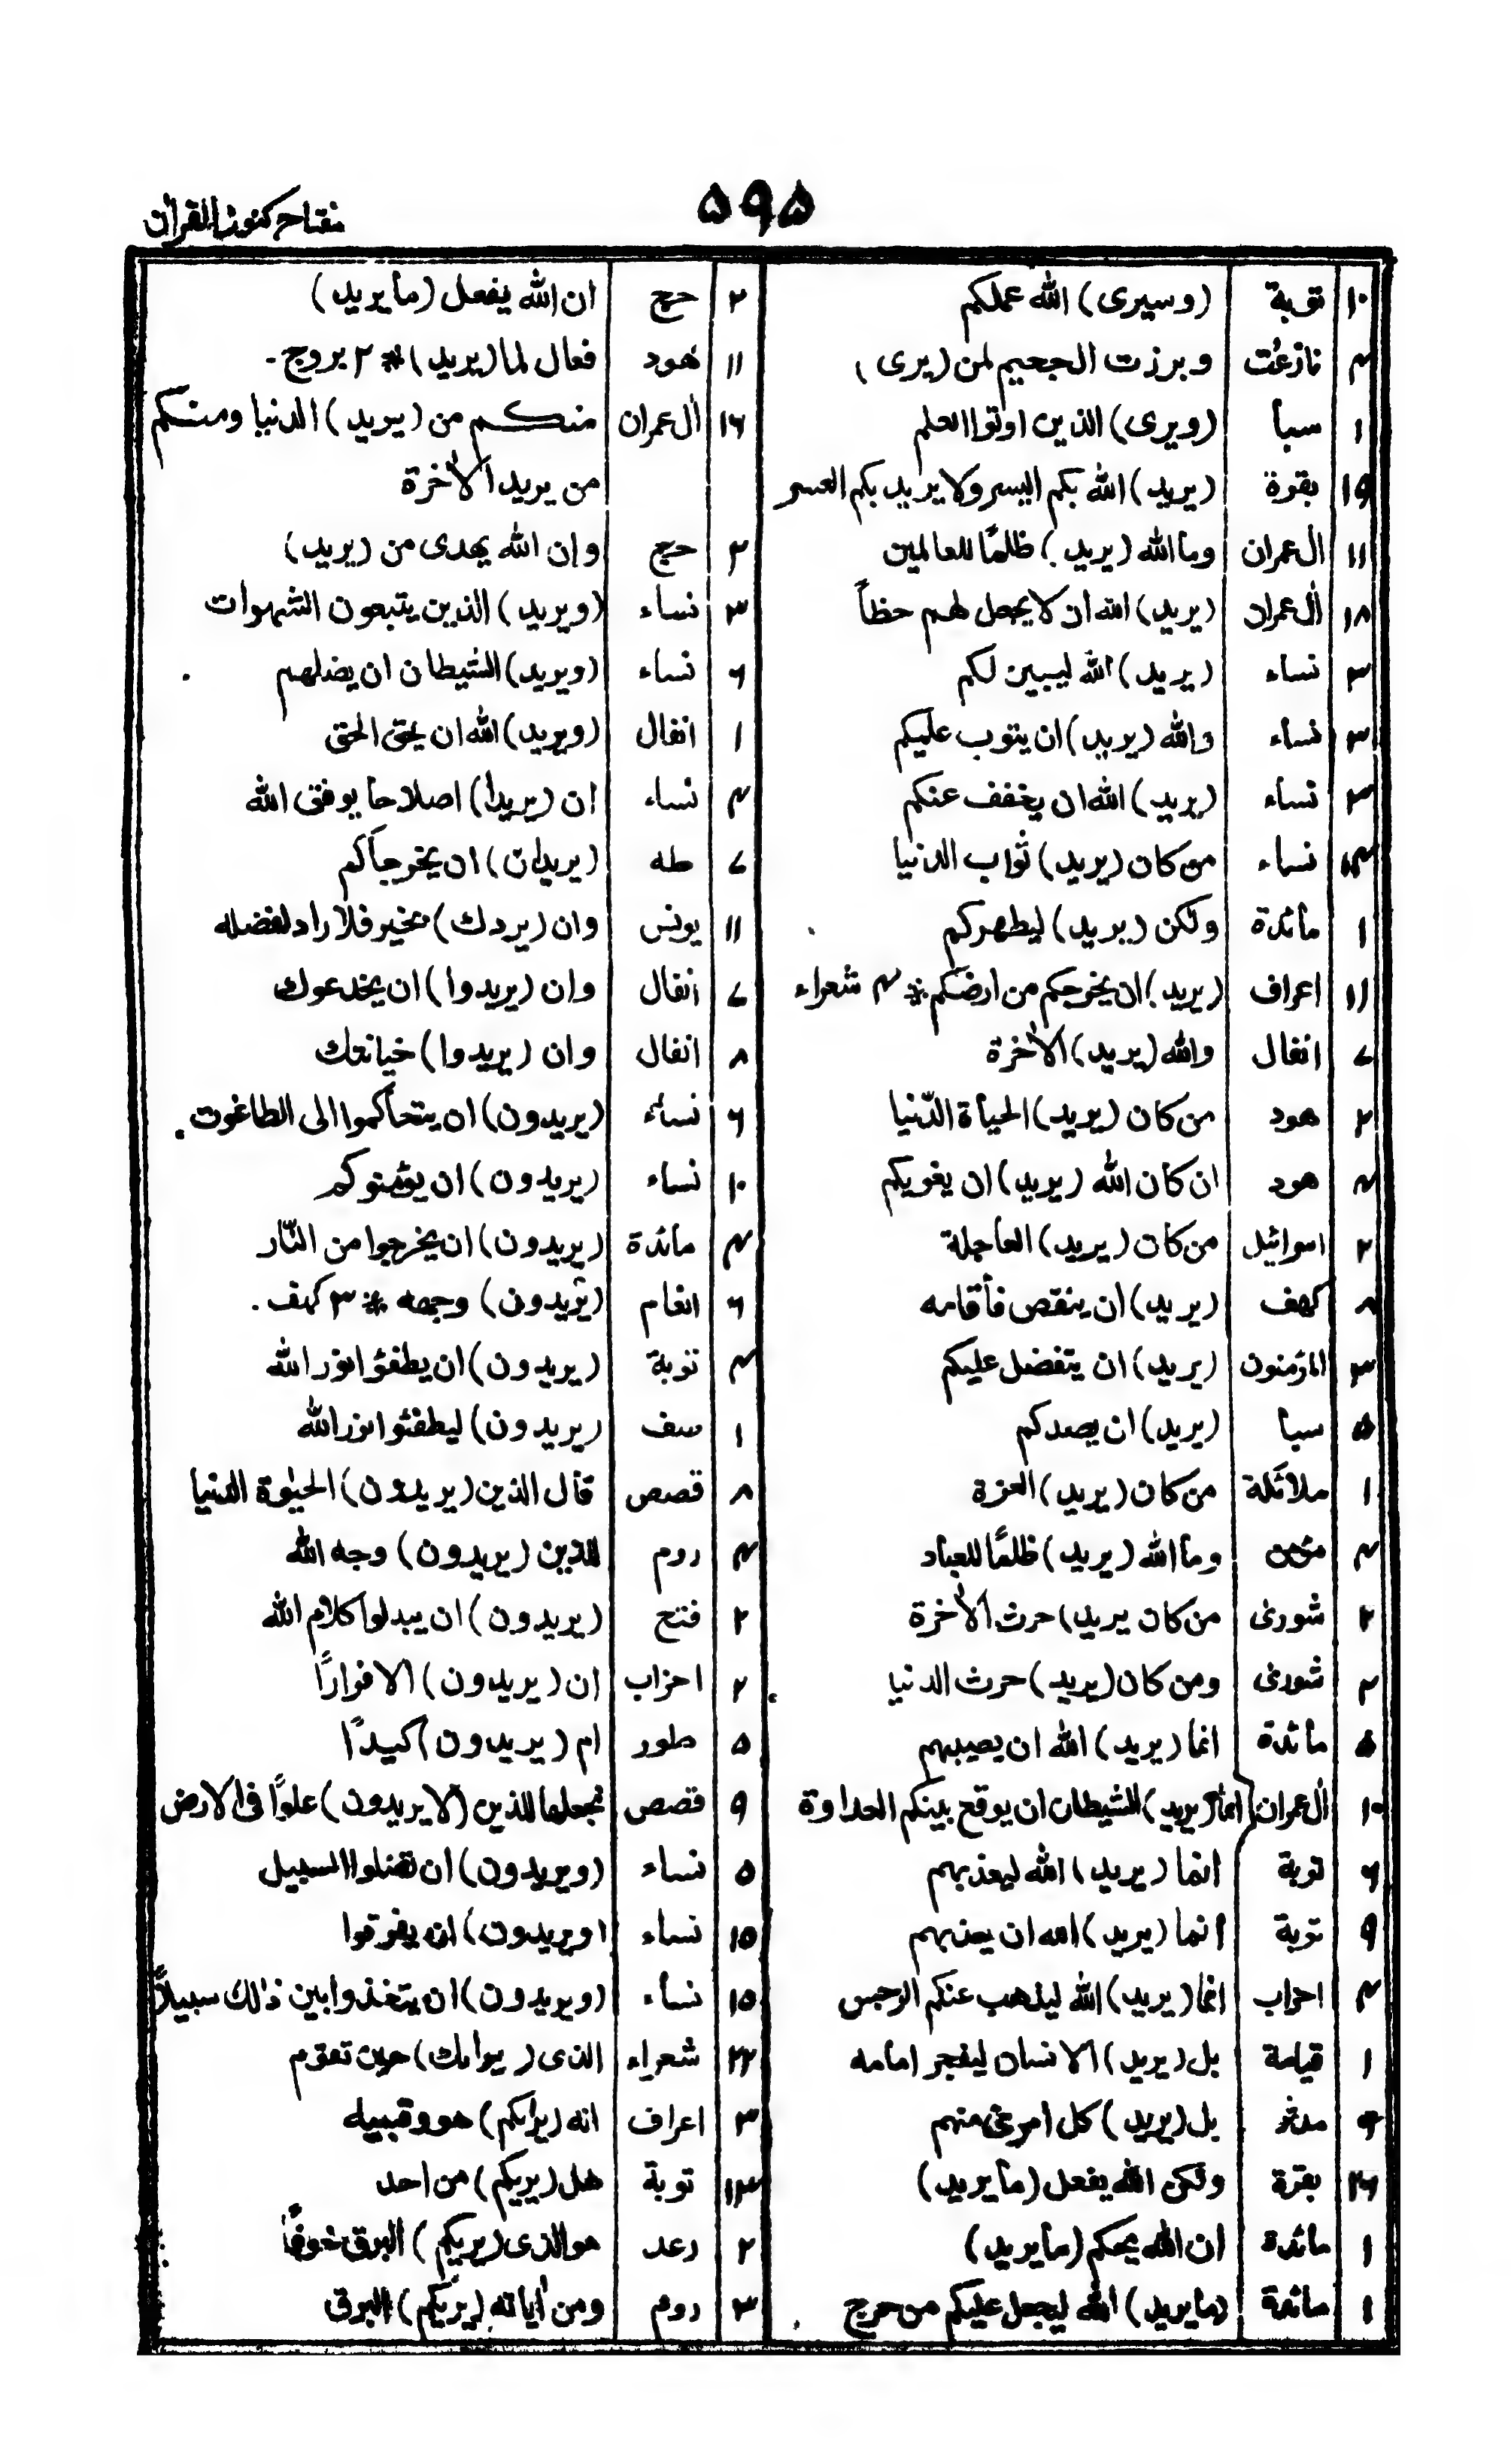 مفتاح كنوز القرآن
۵۹۵
۱۰ توبة (وسيرى) الله عملكم
۲ نازعت وبرزت الجحيم لمن (يرى)
۱ سبأ (ويرى) الذين اوتوا العلم
۱۵ بقرة (يريد) الله بكم اليسر ولا يريد بكم العسر
۱۱ ال عمران وما الله (يريد) ظلمًا للعالمين
۱۸ ال عمران (يريد) الله ان لا يجعل لهم حظاً
۳ نساء (يريد) الله ليبين لكم
۳ نساء والله (يريد) ان يتوب عليكم
۳ نساء (يريد) الله ان يخفف عنكم
نساء من كان (يريد) ثواب الدنيا
۱ مائدة ولكن (يريد) ليطهركم
۱۱ اعراف (يريد) ان يخرجكم من ارضكم * ۲ شعراء
۷ انفال والله (يريد) الأخرة
۲ هود من كان (يريد) الحياة الدّنيا
۲ هود ان كان الله (يريد) ان يغويكم
۲ اسرائيل من كان (يريد) العاجلة
كهف (يريد) ان ينقص فأقامه
۳ المؤمنون (يريد) ان يتفضل عليكم
۵ سبا (يريد) ان يصدكم
۱ ملائكة من كان (يريد) العزة
۴ مؤمن وما الله (يريد) ظلمًا للعباد
۲ شورى من كان يريد) حرث الأخرة
۲ شورى ومن كان (يريد) حرث الدنيا
۵ مائدة انما (يريد) الله ان يصيبهم
۱۰ ال عمران انما (يريد) الشيطان ان يوقع بينكم العداوة
۶ توبة انما (يريد) الله ليعذبهم
۹ توبة انما (يريد) الله ان يعذبهم
۴ احزاب انما (يريد) الله ليذهب عنكم الرجس
۱ قيامة بل (يريد) الانسان ليفجر امامه
مدثر بل (يريد) كل امرئ منهم
بقرة ولكن الله يفعل (ما يريد)
۱ مائدة ان الله يحكم (ما يريد)
۱ مائدة (ما يريد) الله ليجعل عليكم من حرج
۲ حج ان الله يفعل (ما يريد)
۱۱ هود فعال لما (يريد) * ۲ بروج -
۱۶ ال عمران منكم من (يريد) الدنيا ومنكم
من يريد الأخرة
۲ حج وان الله يهدى من (يريد)
۳ نساء (ويريد) الذين يتبعون الشهوات
۶ نساء (ويريد) الشيطان ان يضلهم
۱ انفال (ويريد) الله ان يحق الحق
۴ نساء ان (يريدا) اصلاحا يوفق الله
۷ طه (يريدان) ان يخرجاكم
۱۱ يونس وان (يردك) بخير فلا راد لفضله
۷ انفال وان (يريدوا) ان يخدعوك
۸ انفال وان (يريدوا) خيانتك
۶ نساء (يريدون) ان يتحاكموا الى الطاغوت.
۱۰ نساء (يريدون) ان يؤمنوكم
۴ مائدة (يريدون) ان يخرجوا من النّار
۶ انعام (يريدون) وجهه * ۳ كهف.
۴ توبة (يريدون) ان يطفؤا نور الله
۱ صف (يريدون) ليطفئوا نور الله
۸ قصص قال الذين (يريدون) الحيٰوة الدنيا
۴ روم للذين (يريدون) وجه الله
۲ فتح (يريدون) ان يبدلوا كلام الله
۲ احزاب ان (يريدون) الا فرارًا
۵ طور ام (يريدون) كيدًا
۹ قصص نجعلها للذين (لا يريدون) علوًا فى الارض
۵ نساء (ويريدون) ان تضلوا السبيل
۱۵ نساء (ويريدون) ان يفرقوا
۱۵ نساء (ويريدون) ان يتخذوا بين ذٰلك سبيلاً
۲۲ شعراء الذى (يراك) حين تقوم
۳ اعراف انه (يراكم) هو وقبيله
توبة هل (يريكم) من احد
۲ رعد هو الذى (يريكم) البرق خوفًا
۳ روم ومن أياته (يريكم) البرق